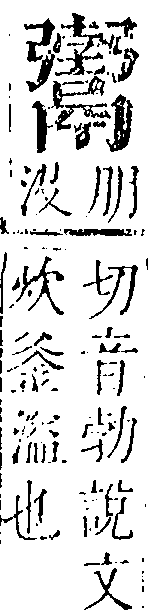 朋
没
切音勃說文
炊釜溢也